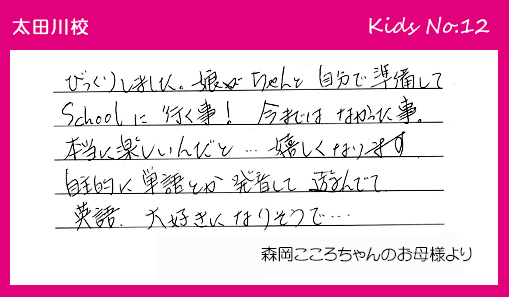 太田川校
Kids No.12
びっくりしました。娘がちゃんと自分で準備して
Schoolに行く事！今まではなかった事。
本当に楽しいんだと…嬉しくなります
自主的に単語とか発音して遊んでて
英語、大好きになりそうで…
森岡こころちゃんのお母様より